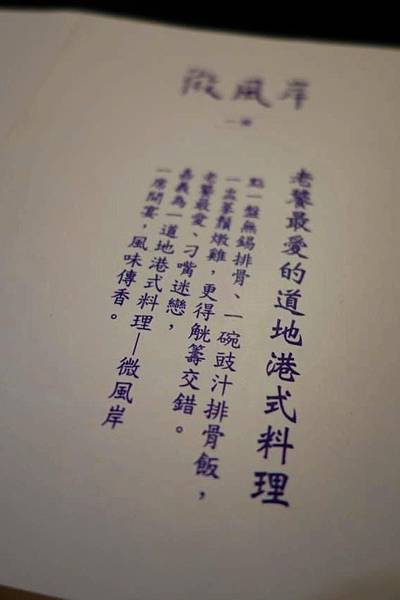 微風岸
老饕最愛的道地港式料理
點一盤無錫排骨、一碗豉汁排骨飯，
一盅筆鬚燉雞，更得觥籌交錯。
老饕最愛、刁嘴迷戀，
嘉義為一道地港式料理—微風岸
一席間宴，風味傳香。